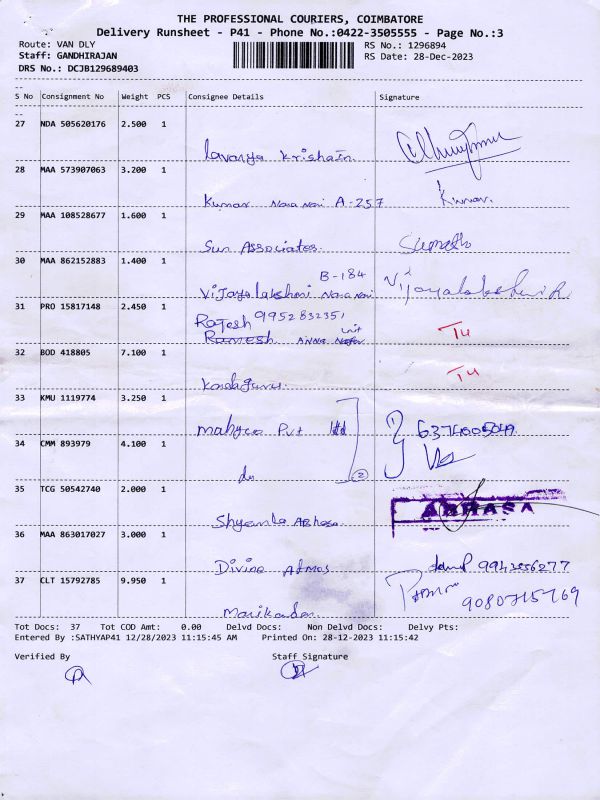 THE PROFESSIONAL COURIERS, COIMBATORE
Delivery Runsheet - P41 - Phone No.:0422-3505555 - Page No.:3
Route: VAN DLY RS No.: 1296894
Staff: GANDHIRAJAN RS Date: 28-Dec-2023
DRS No.: DCJB129689403
S No Consignment No Weight PCS Consignee Details Signature
27 NDA 505620176 2.500 1
Lavanya Krishain
28 MAA 573907063 3.200 1
Kumar Nava Nari A-257 Kumar.
29 MAA 108528677 1.600 1
Sun Associates.
30 MAA 862152883 1.400 1
B-184
Vijayalakshmi Nava Nari Vijayalakshmi R
31 PRO 15817148 2.450 1
Rajesh 9952832351
Ramesh Anna unit T4
32 BOD 418805 7.100 1 T4
33 KMU 1119774 3.250 1
Mahyco Pvt ltd
34 CMM 893979 4.100 1
do 2
35 TCG 50542740 2.000 1
Shyamla ABhasa ABHASA
36 MAA 863017027 3.000 1
Divine Atmos 9942556277
37 CLT 15792785 9.950 1
Manikandan 9080715769
Tot Docs: 37 Tot COD Amt: 0.00 Delvd Docs: Non Delvd Docs: Delvy Pts:
Entered By :SATHYAP41 12/28/2023 11:15:45 AM Printed On: 28-12-2023 11:15:42
Verified By Staff Signature